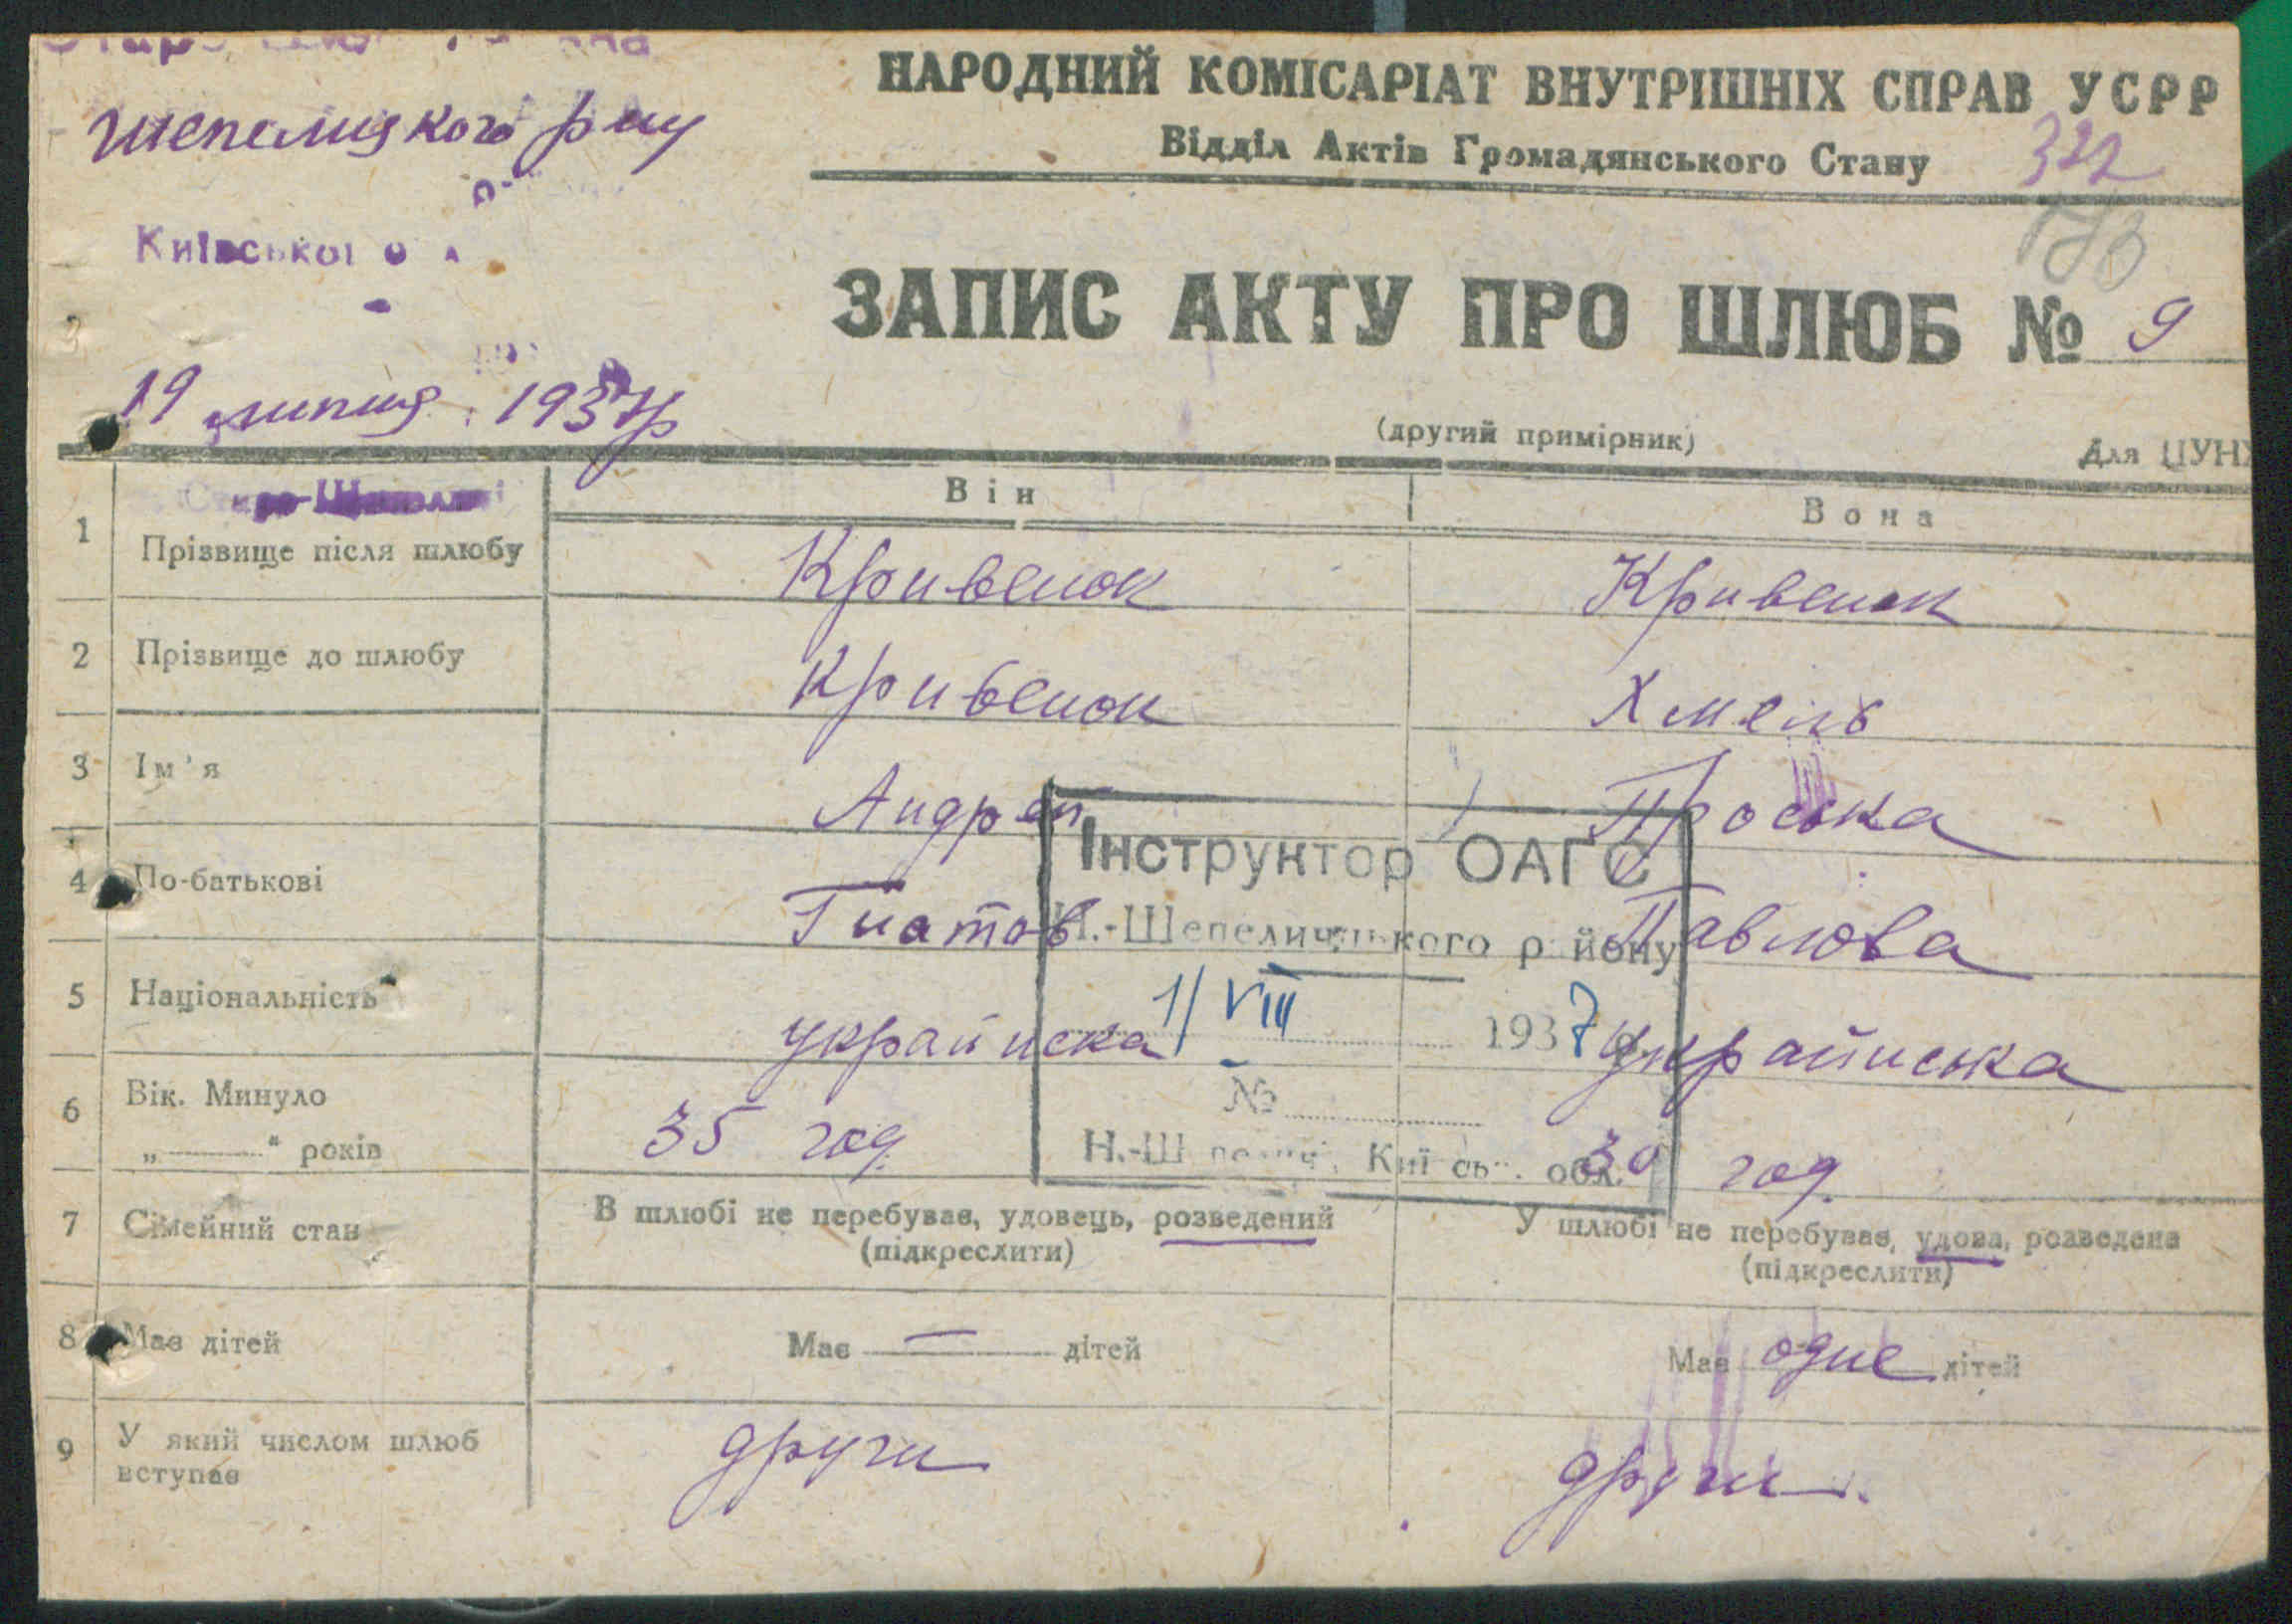 НАРОДНИЙ КОМІСАРІАТ ВНУТРІШНІХ СПРАВ УСРР
Відділ Актів Громадянського Стану
322
Шепелицкого р-ну
Київської
ЗАПИС АКТУ ПРО ШЛЮБ № 9
19 липня 1937р
(другий примірник)
Для ЦУНХ
Він
Вона
1 Прізвище після шлюбу Кривенок Кривенок
2 Прізвище до шлюбу Кривенок Хмель
3 Ім'я Андрей Проська
4 По-батькові Гнатов Павлова
5 Національність українска українська
6 Вік. Минуло
„ “ років 35 год 30 год
Інструктор ОАГС
Н.-Шепелицького району
1/VIII 1937
№
Н.-Ш Київськ. обл.
7 Сімейний стан В шлюбі не перебував, удовець, розведений У шлюбі не перебувае, удова, розведена
(підкреслити) (підкреслити)
8 Має дітей Має — дітей Має одне дітей
9 У який числом шлюб
вступає други други